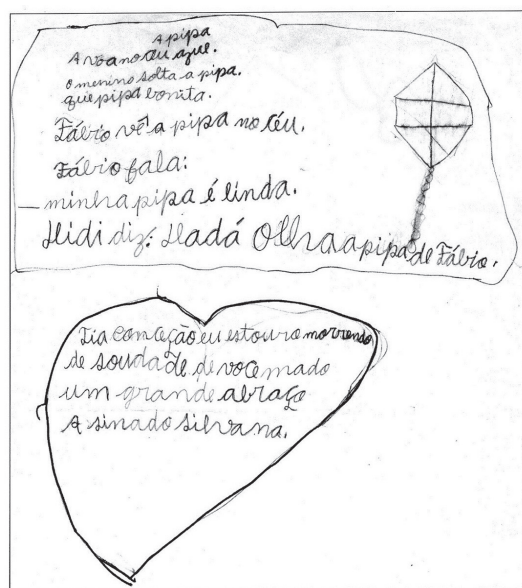 A pipa
A vôa no céu azul.
o menino solta a pipa.
que pipa bonita.
Fábio vê a pipa no céu.
Fábio fala:
— minha pipa é linda.
Didi diz: Dadá Olha a pipa de Fábio.
Tia comceção eu estou ro morrendo
de soudade de você mado
um grande abraço
A sinado silvana.